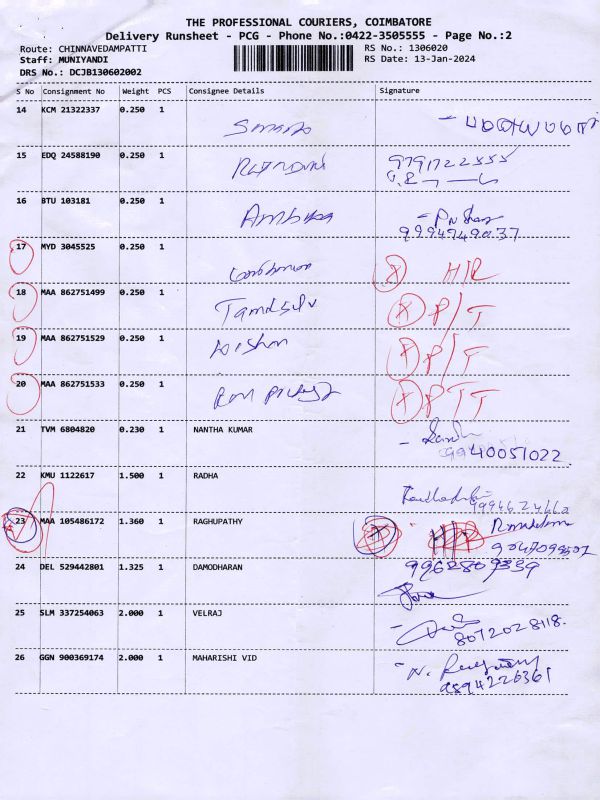 THE PROFESSIONAL COURIERS, COIMBATORE
Delivery Runsheet - PCG - Phone No.:0422-3505555 - Page No.:2
Route: CHINNAVEDAMPATTI RS No.: 1306020
Staff: MUNIYANDI RS Date: 13-Jan-2024
DRS No.: DCJB130602002
S No Consignment No Weight PCS Consignee Details Signature
14 KCM 21322337 0.250 1
15 EDQ 24588190 0.250 1
9791722555
16 BTU 103181 0.250 1
Ambika
9994749037
17 MYD 3045525 0.250 1
H/R
18 MAA 862751499 0.250 1
P/T
19 MAA 862751529 0.250 1
P/T
20 MAA 862751533 0.250 1
PTT
21 TVM 6804820 0.230 1 NANTHA KUMAR
9940051022
22 KMU 1122617 1.500 1 RADHA
23 MAA 105486172 1.360 1 RAGHUPATHY
24 DEL 529442801 1.325 1 DAMODHARAN 9962809339
25 SLM 337254063 2.000 1 VELRAJ
8072028118.
26 GGN 900369174 2.000 1 MAHARISHI VID
9894226361